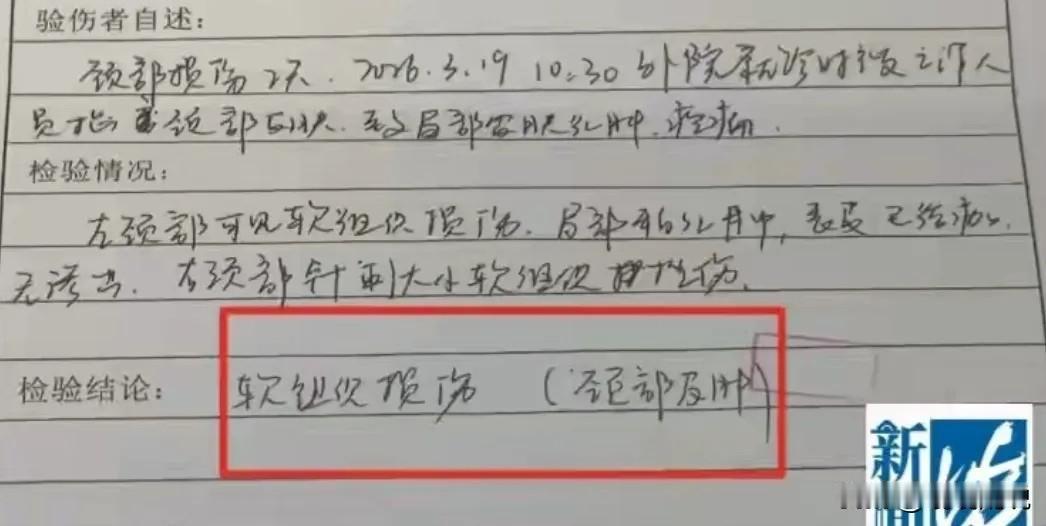 验伤者自述:
颈部损伤2天. 2026.3.19 10:30 外院就诊时被工作人
员 颈部 致局部皮肤红肿.疼痛.
检验情况:
左颈部可见软组织损伤.局部有红肿,表皮已结痂.
无渗出.右颈部针刺大小软组织 伤.
检验结论: 软组织损伤 (颈部皮肤
新闻